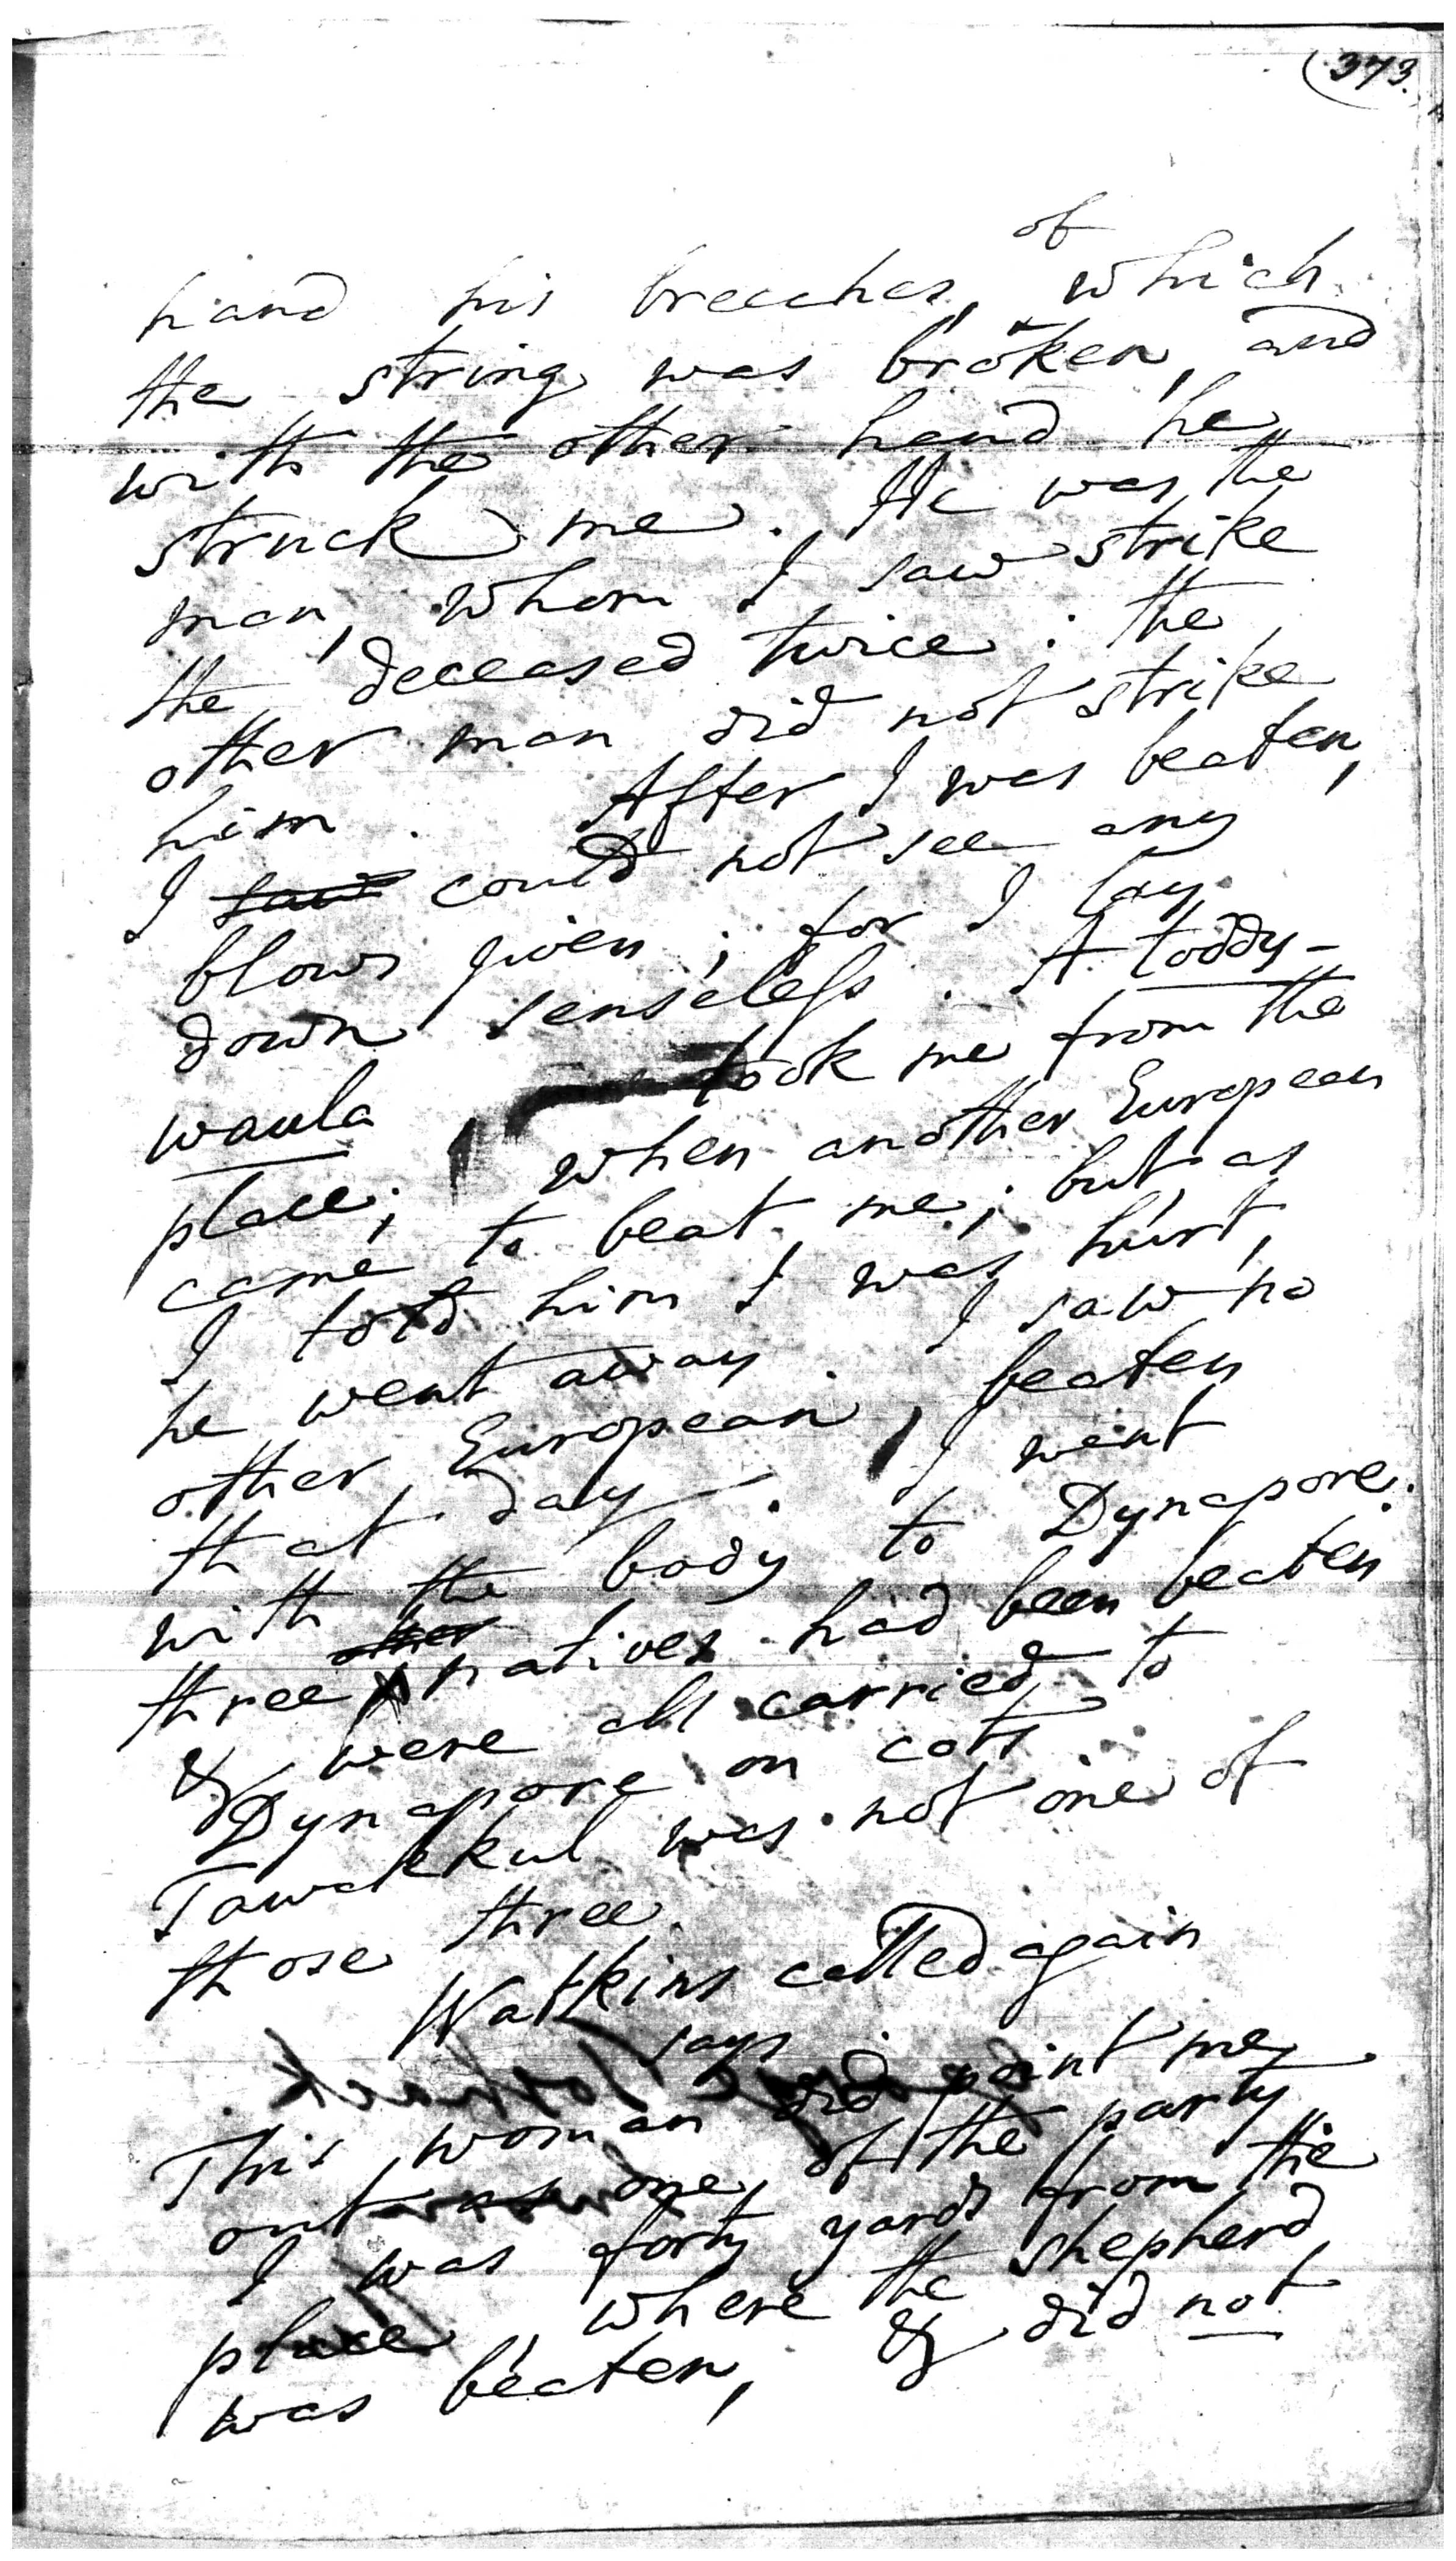 (373.
hand his breeches, of which
the string was broken, and
with the other hand he
struck me. He was the
man, whom I saw strike
the deceased twice: the
other man did not strike
him. After I was beaten,
I saw could not see any
blows given; for I lay
down senseless. A toddy-
waula took me from the
place; when another European
came to beat me; but, as
I told him I was hurt,
he went away. I saw no
other European, beaten
that day. I went
with the body to Dynapore.
three other natives had been beaten
& were all carried to
Dynapore on cots
Tawakkul was not one of
those three.
Watkins called again
says
This woman did point me
out as one of the party
I was forty yards from the
place, where the shepherd
was beaten, & did not